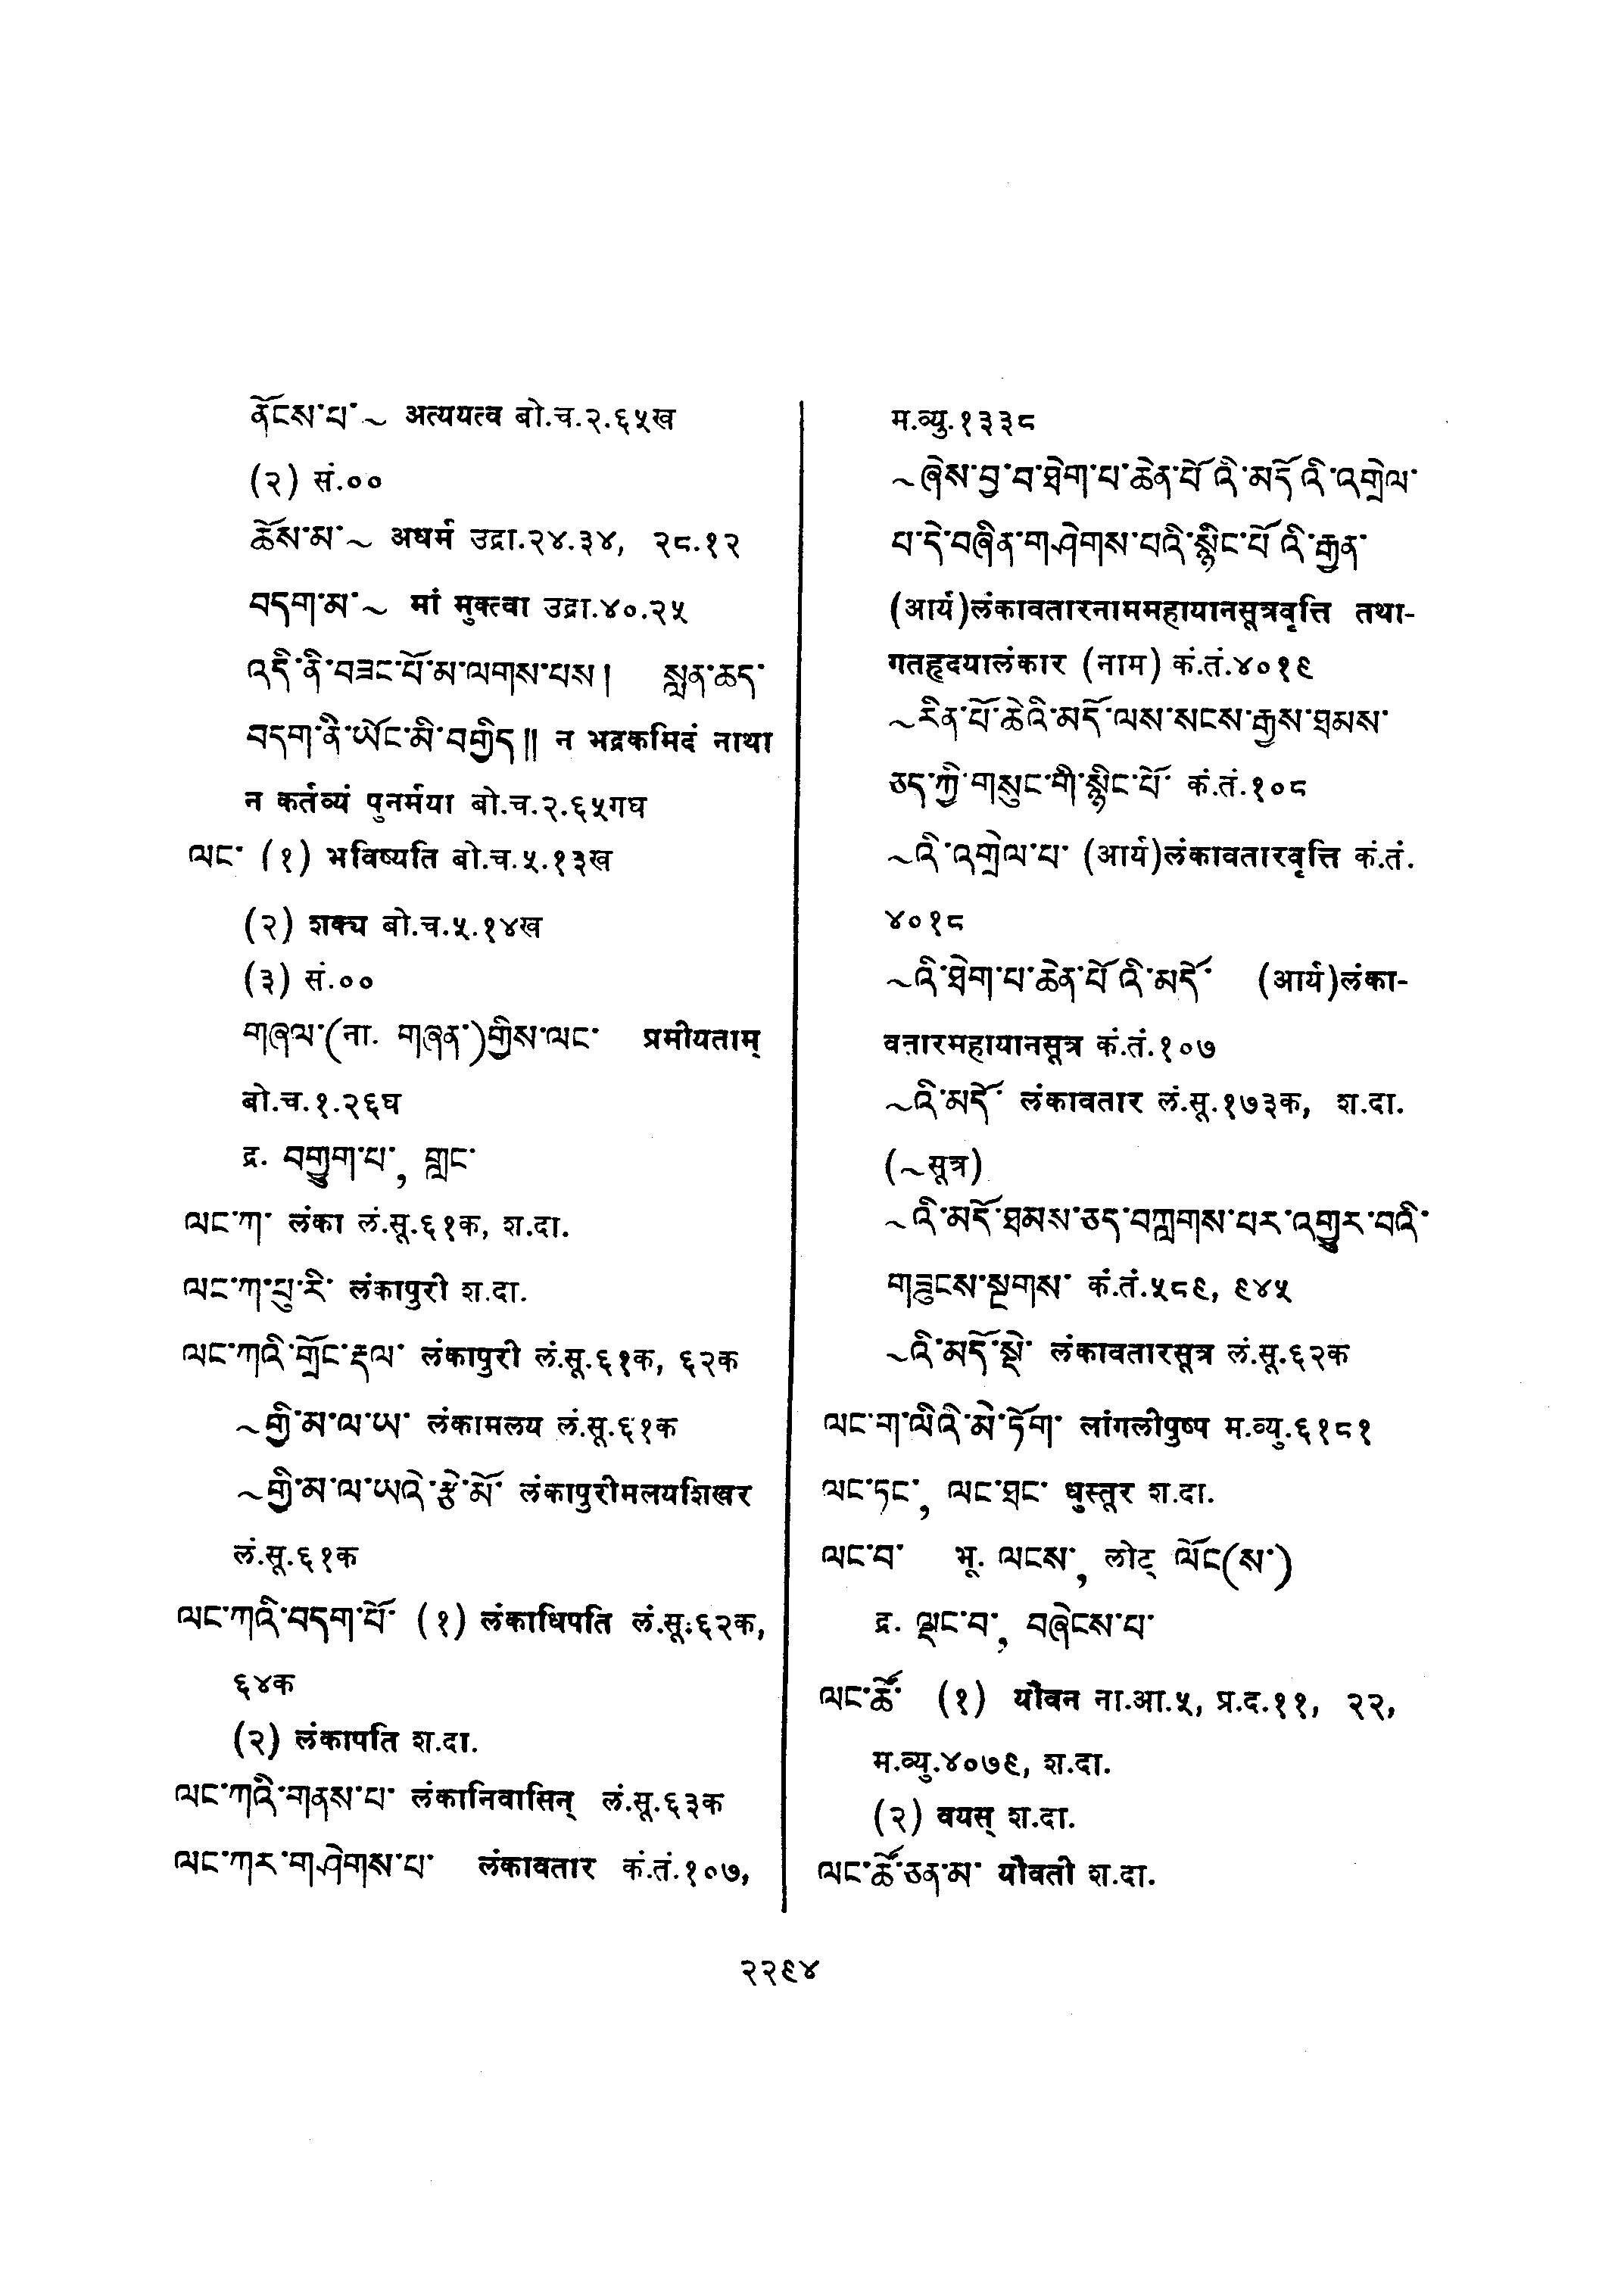 ནོངས་པ་~ अत्ययत्व बो.च.२.६५ख
(२) सं.००
ཆོས་མ་~ अधर्म उद्रा.२४.३४, २८.१२
བདག་མ་~ मां मुक्त्वा उद्रा.४०.२५
འདི་ནི་བཟང་པོ་མ་ལགས་པས། སླན་ཆད་
བདག་ནི་ཡོང་མི་བགྱིད༎ न भद्रकमिदं नाथा
न कर्तव्यं पुनर्मया बो.च.२.६५गघ
ལང་ (१) भविष्यति बो.च.५.१३ख
(२) शक्य बो.च.५.१४ख
(३) सं.००
གཞལ་(ना. གཞན་)གྱིས་ལང་ प्रमीयताम्
बो.च.१.२६घ
द्र. བགྱུག་པ་, གླང་
ལང་ཀ་ लंका लं.सू.६१क, श.दा.
ལང་ཀ་པུ་རི་ लंकापुरी श.दा.
ལང་ཀའི་གྲོང་རྡལ་ लंकापुरी लं.सू.६१क, ६२क
~གྱི་མ་ལ་ཡ་ लंकामलय लं.सू.६१क
~གྱི་མ་ལ་ཡའེ་རྩེ་མོ་ लंकापुरीमलयशिखर
लं.सू.६१क
ལང་ཀའི་བདག་པོ་ (१) लंकाधिपति लं.सू.६२क,
६४क
(२) लंकापति श.दा.
ལང་ཀའི་གནས་པ་ लंकानिवासिन् लं.सू.६३क
ལང་ཀར་གཤེགས་པ་ लंकावतार कं.तं.१०७,
म.व्यु.१३३८
~ཞེས་བྱ་བ་ཐེག་པ་ཆེན་པོའི་མདོའི་འགྲེལ་
པ་དེ་བཞིན་གཤེགས་པའི་སྙིང་པོའི་རྒྱན་
(आर्य)लंकावतारनाममहायानसूत्रवृत्ति तथा-
गतहृदयालंकार (नाम) कं.तं.४०१९
~རིན་པོ་ཆེའི་མདོ་ལས་སངས་རྒྱས་ཐམས་
ཅད་ཀྱི་གསུང་གི་སྙིང་པོ་ कं.तं.१०८
~འི་འགྲེལ་པ་ (आर्य)लंकावतारवृत्ति कं.तं.
४०१८
~འི་ཐེག་པ་ཆེན་པོའི་མདོ་ (आर्य)लंका-
वतारमहायानसूत्र कं.तं.१०७
~འི་མདོ་ लंकावतार लं.सू.१७३क, श.दा.
(~सूत्र)
~འི་མདོ་ཐམས་ཅད་བཀླགས་པར་འགྱུར་བའི་
གཟུངས་སྔགས་ कं.तं.५८९, ९४५
~འི་མདོ་སྡེ་ लंकावतारसूत्र लं.सू.६२क
ལང་ག་ལིའི་མེ་ཏོག་ लांगलीपुष्प म.व्यु.६१८१
ལང་ཏང་, ལང་ཐང་ धुस्तूर श.दा.
ལང་བ་ भू. ལངས་, लोट् ལོང(ས་)
द्र. ལྡང་བ་, བཞེངས་པ་
ལང་ཚོ་ (१) यौवन ना.आ.५, प्र.द.११, २२,
म.व्यु.४०७९, श.दा.
(२) वयस् श.दा.
ལང་ཚོ་ཅན་མ་ यौवती श.दा.
२२९४